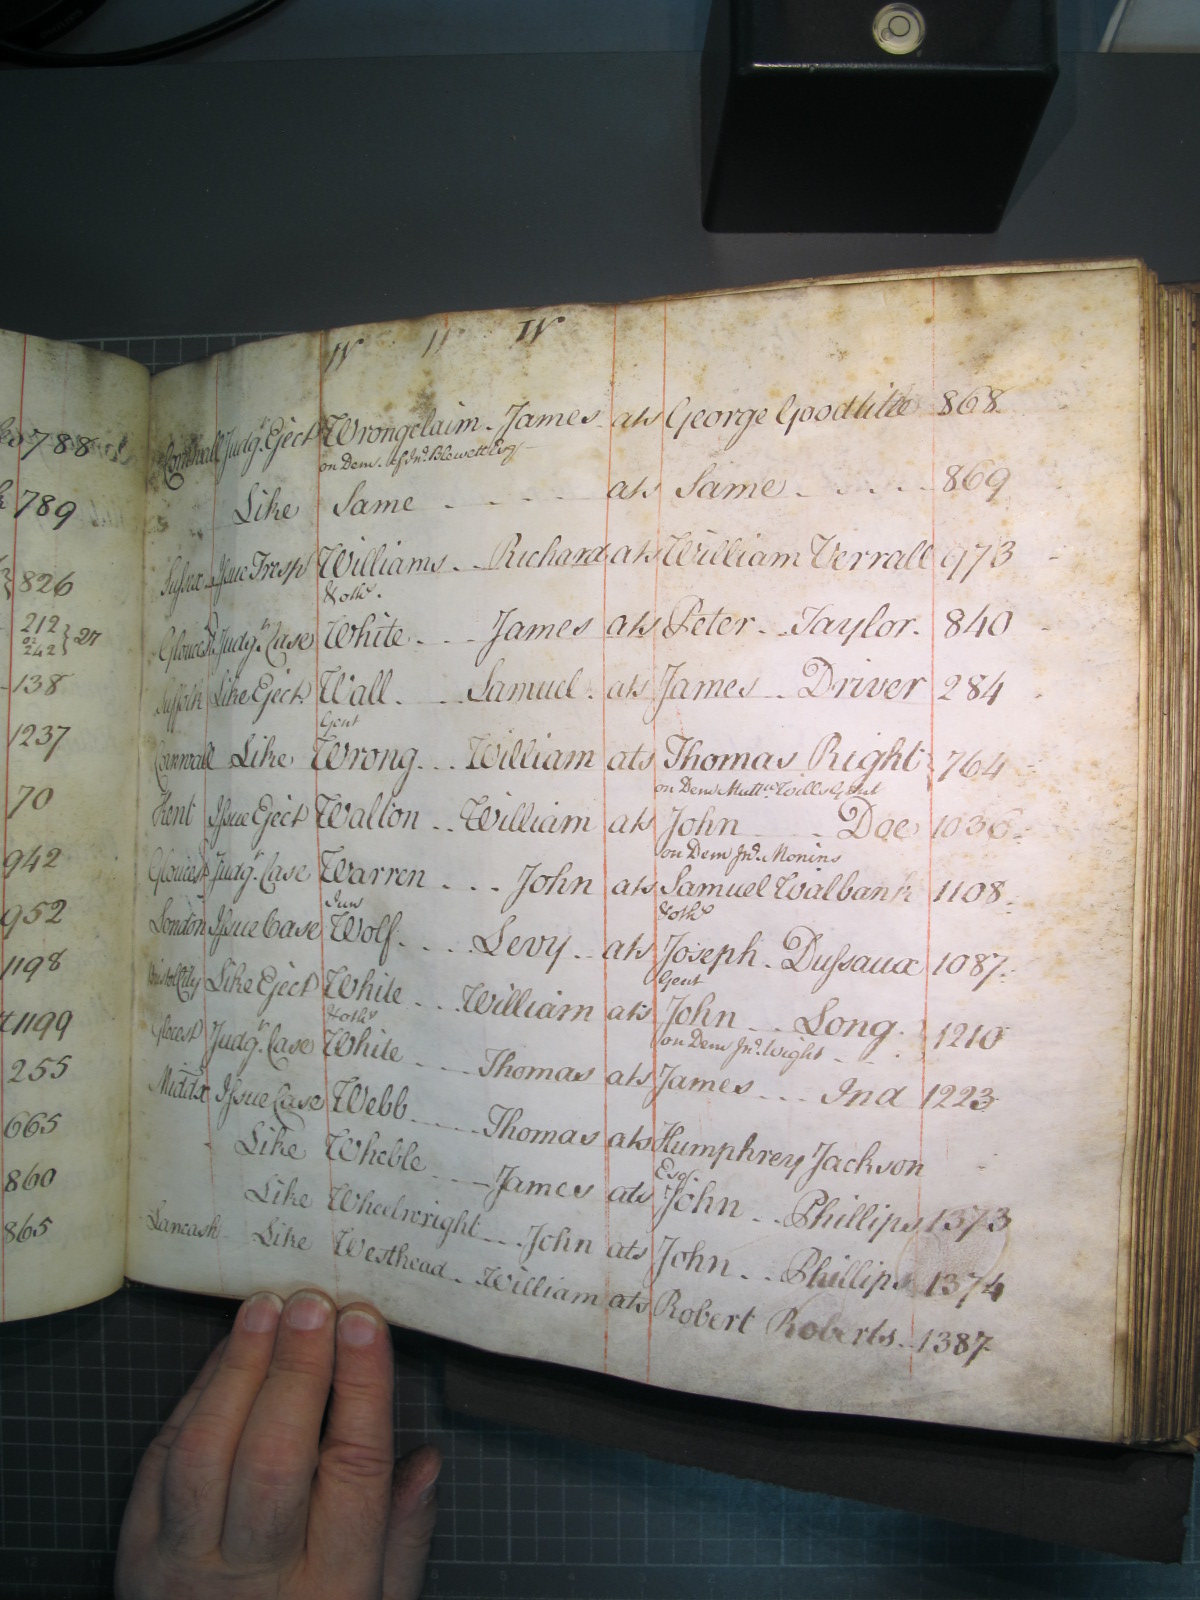 W 11 W
Cornwall Judgt. Eject Wrongclaim. James ats George Goodtitle 868
on Dem. of Jno. Blewett Esqr
Like Same ats Same 869
Sussex Issue Tresp Williams Richard ats William Verrall 973
& othrs.
Gloucesr Judgt. Case White James ats Peter Taylor. 840
Suffolk Like Eject. Wall. Samuel. ats James Driver 284
Gent
Cornwall Like Wrong William ats Thomas Right 764
on Dem Mattw. Wills Gent
Kent Issue Eject Walton William ats John Doe 1036
on Dem Jno. Monins
Gloucesr Judgt. Case Warren John ats Samuel Walbank 1108
Jun & othrs
London Issue Case Wolf. Levy ats Joseph Dussaux 1087
Gent
Bristol City Like Eject White William ats John Long. 1210
& othrs on Dem Jno. Wight
Glocesr Judgt. Case White Thomas ats James Ind 1223
Middx Issue Case Webb Thomas ats Humphrey Jackson
Esqr.
Like Wheble James ats John Phillips 1373
Like Wheelwright John ats John Phillips 1374
Lancash Like Westhead William ats Robert Roberts 1387
788
789
826
212
or
242 } 27
138
1237
70
942
952
1198
1199
255
665
860
865